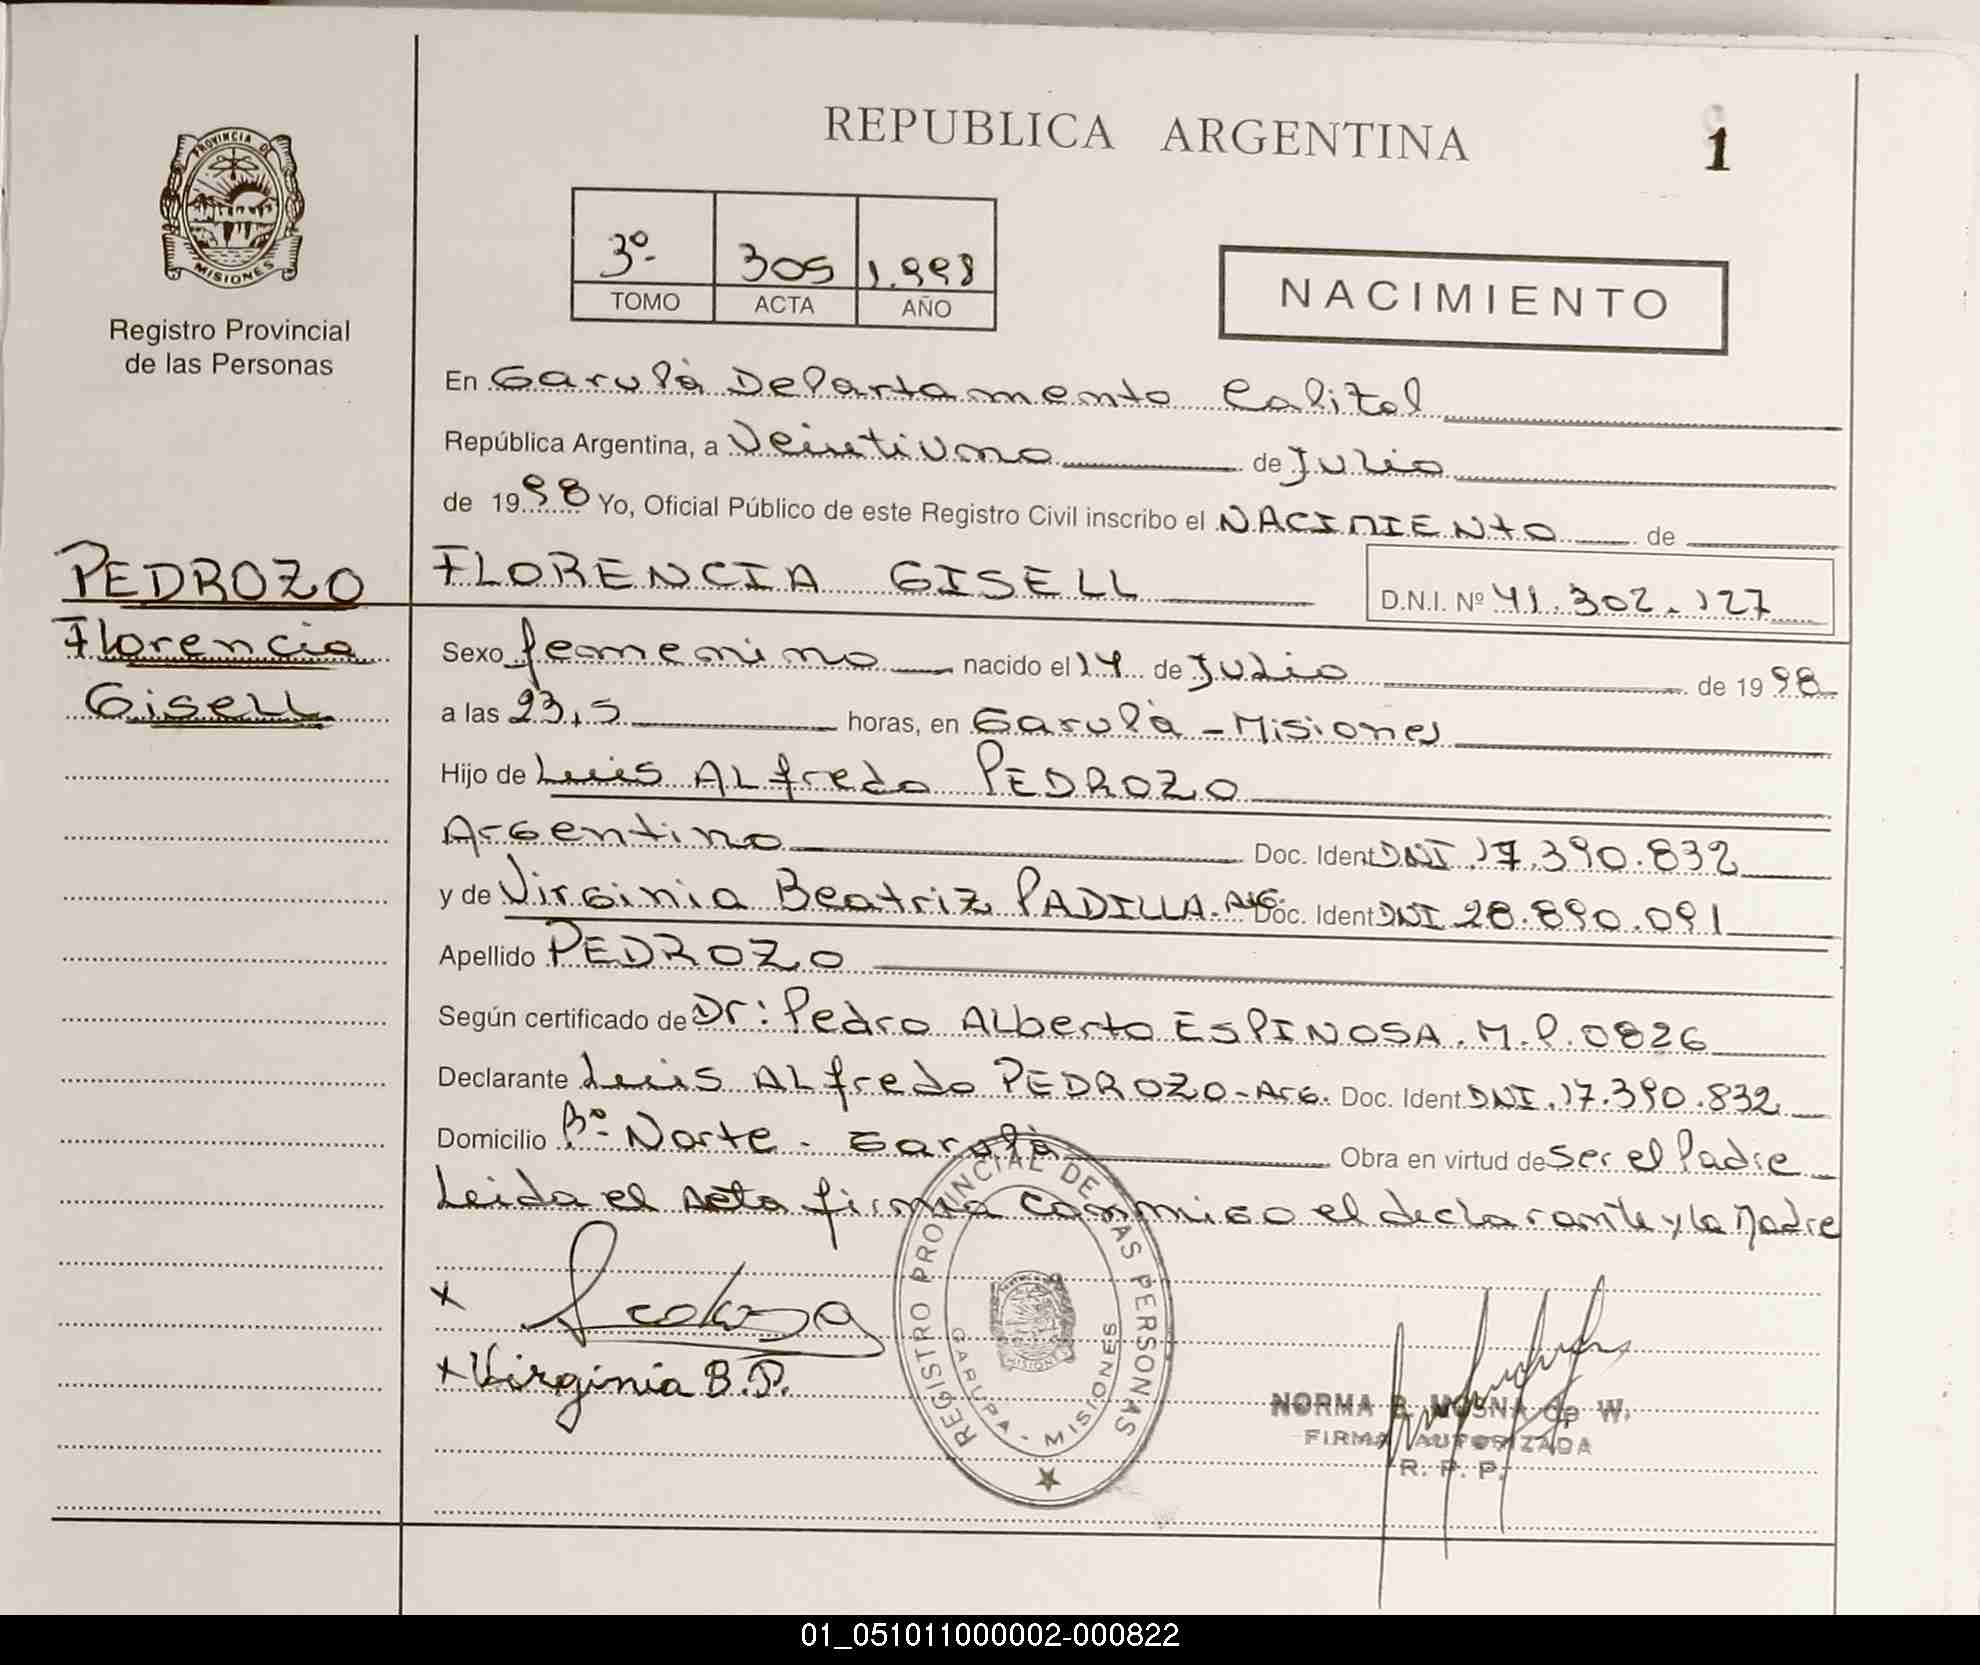 REPUBLICA ARGENTINA
1
PROVINCIA DE
MISIONES
Registro Provincial
de las Personas
3º 305 1.998
TOMO ACTA AÑO
NACIMIENTO
En Garupá Departamento Capital
República Argentina, a Veintiuno de Julio
de 1998 Yo, Oficial Público de este Registro Civil inscribo el NACIMIENTO de
PEDROZO
Florencia
Gisell
FLORENCIA GISELL D.N.I. Nº 41.302.127
Sexo femenino nacido el 14 de Julio de 1998
a las 23,5 horas, en Garupá - Misiones
Hijo de Luis Alfredo PEDROZO
Argentino Doc. Ident DNI.17.390.832
y de Virginia Beatriz PADILLA. Arg. Doc. Ident DNI 28.890.091
Apellido PEDROZO
Según certificado de Dr: Pedro Alberto ESPINOSA. M.P. 0826
Declarante Luis Alfredo PEDROZO - Arg. Doc. Ident DNI.17.390.832
Domicilio Bº Norte - Garupá Obra en virtud de Ser el Padre
Leida el Acta firma conmigo el declarante y la Madre
x
x Virginia B.P.
REGISTRO PROVINCIAL DE LAS PERSONAS
GARUPA - MISIONES
NORMA B. MOSNA de W.
FIRMA AUTORIZADA
R. P. P.
01_051011000002-000822